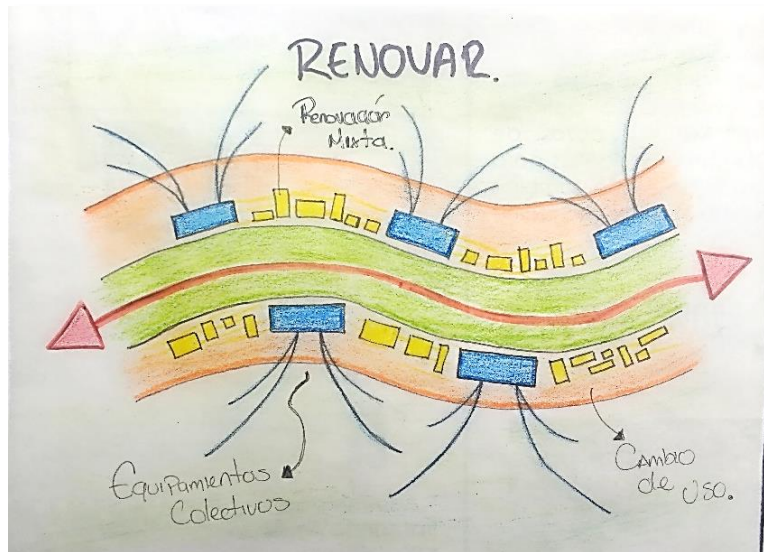 RENOVAR.
Renovación
Mixta.
Equipamientos
Colectivos
Cambio
de USO.